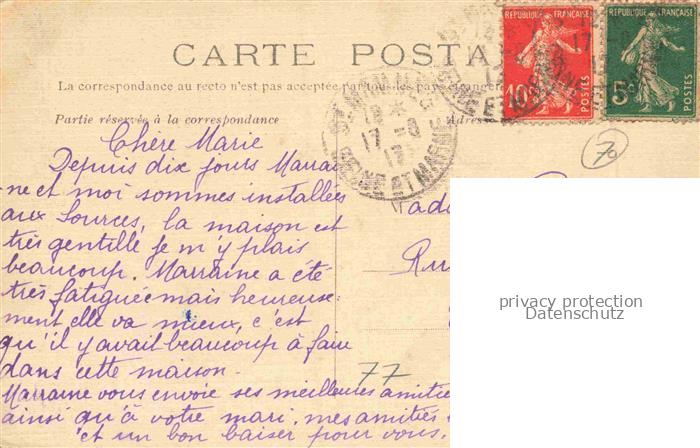 CARTE POSTA
La correspondance au recto n'est pas acceptée par tous les pays étrangers
Partie réservée à la correspondance
Adres
RÉPUBLIQUE FRANÇAISE
10c
POSTES
RÉPUBLIQUE FRANÇAISE
5c
POSTES
18 *
17 -8
17
SEINE ET MARNE
70
Chère Marie
Depuis dix jours Marrai
-ne et moi sommes installées
aux Sources, la maison est
très gentille je m'y plais
beaucoup. Marraine a été
très fatiguée mais heureuse-
ment elle va mieux, c'est
qu'il y avait beaucoup à faire
dans cette maison.
Marraine vous envoie ses meilleures amitié
ainsi qu'à votre mari, mes amitiés
et un bon baiser pour vous.
77
Ru
privacy protection
Datenschutz